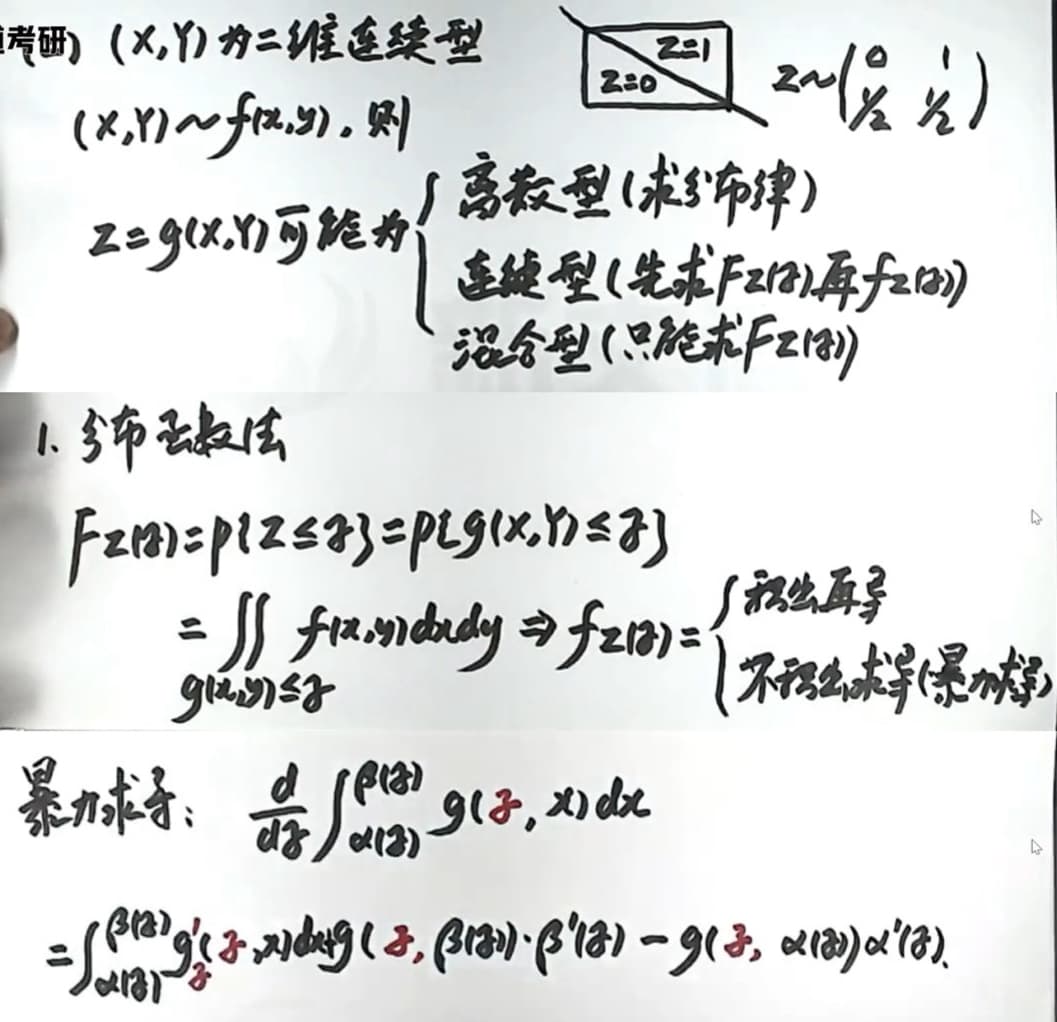 考研) (X,Y)为二维连续型
Z=1
Z=0
Z~(0 1
1/2 1/2)
(X,Y)~f(x,y), 则
Z=g(X,Y)可能为{
离散型(求分布律)
连续型(先求Fz(z)再fz(z))
混合型(只能求Fz(z))
1. 分布函数法
Fz(z)=P{Z≤z}=P{g(X,Y)≤z}
=∬ f(x,y)dxdy ⇒ fz(z)={
g(x,y)≤z
积出再导
不积出,求导(暴力求导)
暴力求导: d/dz ∫_{α(z)}^{β(z)} g(z,x)dx
=∫_{α(z)}^{β(z)} g'_z(z,x)dx+g(z,β(z))·β'(z)-g(z,α(z))α'(z).